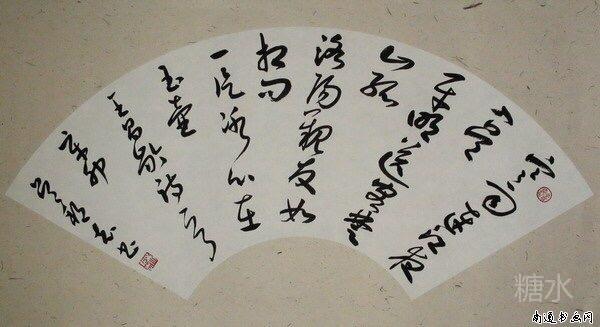 寒雨连江夜
入吴
平明送客楚
山孤
洛阳亲友如
相问
一片冰心在
玉壶
王昌龄诗一首
辛卯
糖水
南通书画网